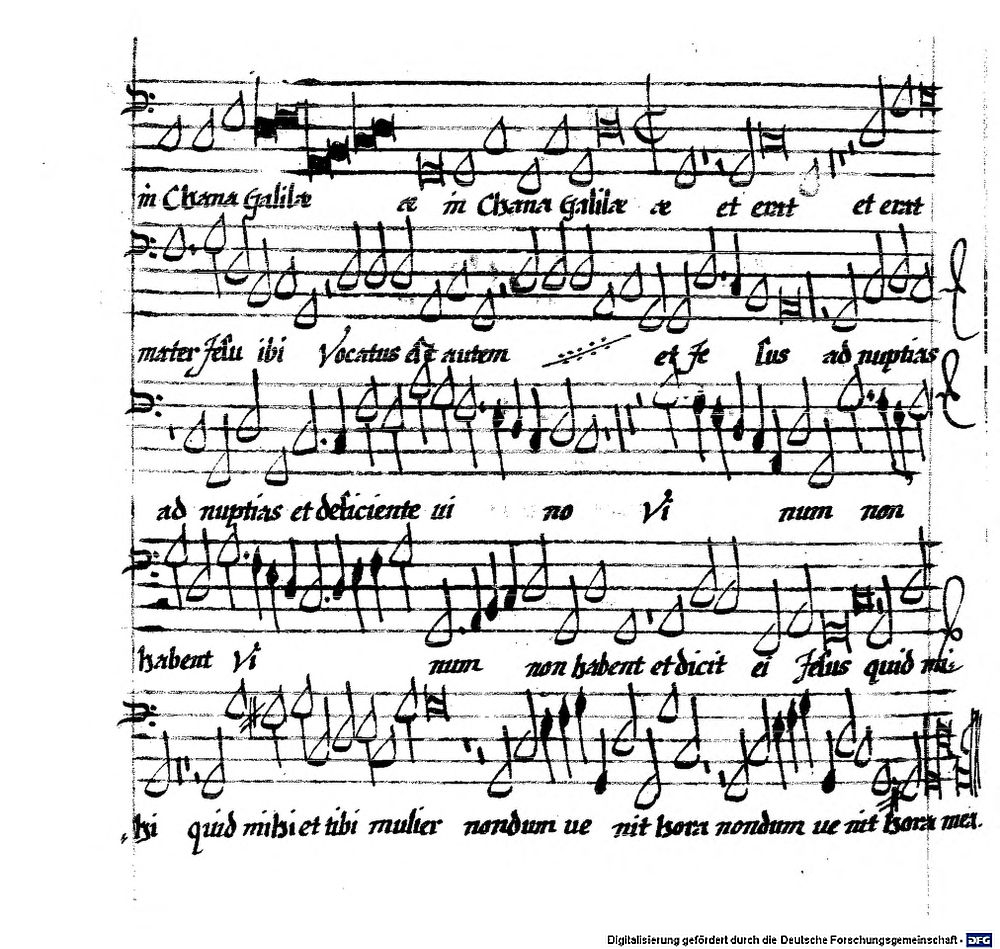 in Chana Galilæ æ in Chana Galilæ æ et erat et erat
mater Jesu ibi Vocatus autem et Je sus ad nuptias
ad nuptias et deficiente ui no Vi num non
habent Vi num non habent et dicit ei Jesus quid mi
hi quid mihi et tibi mulier nondum ue nit hora nondum ue nit hora mea.
Digitalisierung gefördert durch die Deutsche Forschungsgemeinschaft - DFG